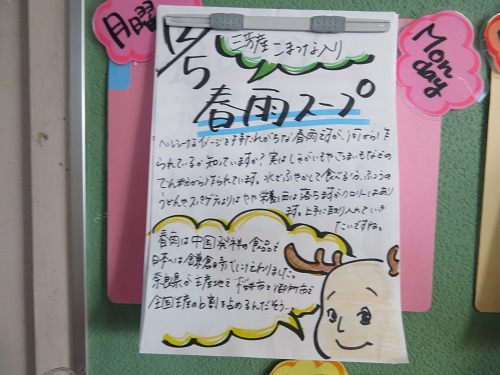 月曜
Monday
12/5
三芳産 こまつな入り
春雨スープ
ヘルシーなイメージをもたれがちな春雨ですが、何から作
られているか知っていますか？実はじゃがいもやさつまいもなどの
でん粉から作られています。水でふやかして食べる分、ふつうの
うどんやスパゲティよりはやや栄養面は落ちますがカロリーはあり
ます。上手に取り入れていき
たいですね。
春雨は中国発祥の食品で
日本へは鎌倉時代に伝わりました。
奈良県が主産地で桜井市と御所市で
全国生産の6割を占めるんだそう…